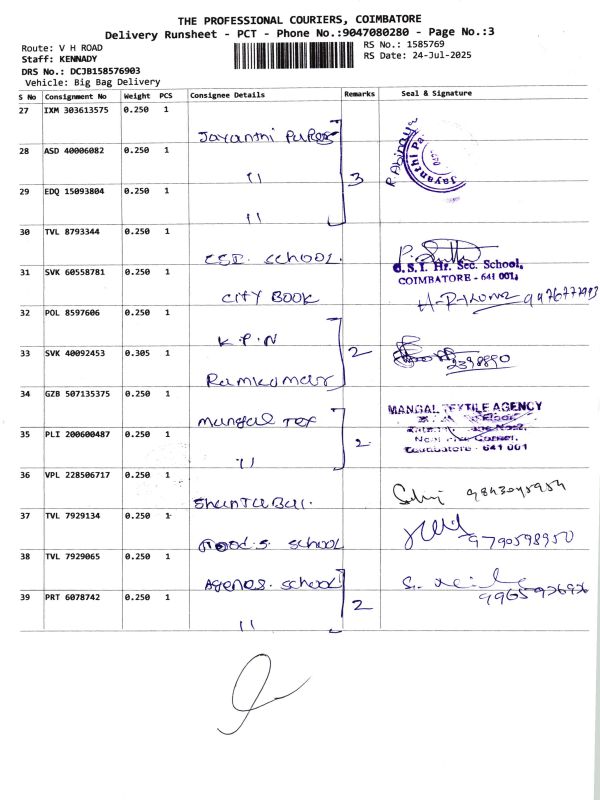 THE PROFESSIONAL COURIERS, COIMBATORE
Delivery Runsheet - PCT - Phone No.:9047080280 - Page No.:3
Route: V H ROAD
RS No.: 1585769
Staff: KENNADY
RS Date: 24-Jul-2025
DRS No.: DCJB158576903
Vehicle: Big Bag Delivery
S No Consignment No Weight PCS Consignee Details Remarks Seal & Signature
27 IXM 303613575 0.250 1
Jayanthi
28 ASD 40006082 0.250 1
" 3
29 EDQ 15093804 0.250 1
"
30 TVL 8793344 0.250 1
CSI. School.
C.S.I. Hr. Sec. School,
COIMBATORE - 641 001.
31 SVK 60558781 0.250 1
City Book
32 POL 8597606 0.250 1
K.P.N
33 SVK 40092453 0.305 1
2
Ramkumar
2398890
34 GZB 507135375 0.250 1
Mangal Tex
MANGAL TEXTILE AGENCY
35 PLI 200600487 0.250 1
" 2
Coimbatore - 641 001
36 VPL 228506717 0.250 1
Shantabai.
37 TVL 7929134 0.250 1
School
9790598950
38 TVL 7929065 0.250 1
School
39 PRT 6078742 0.250 1
" 2